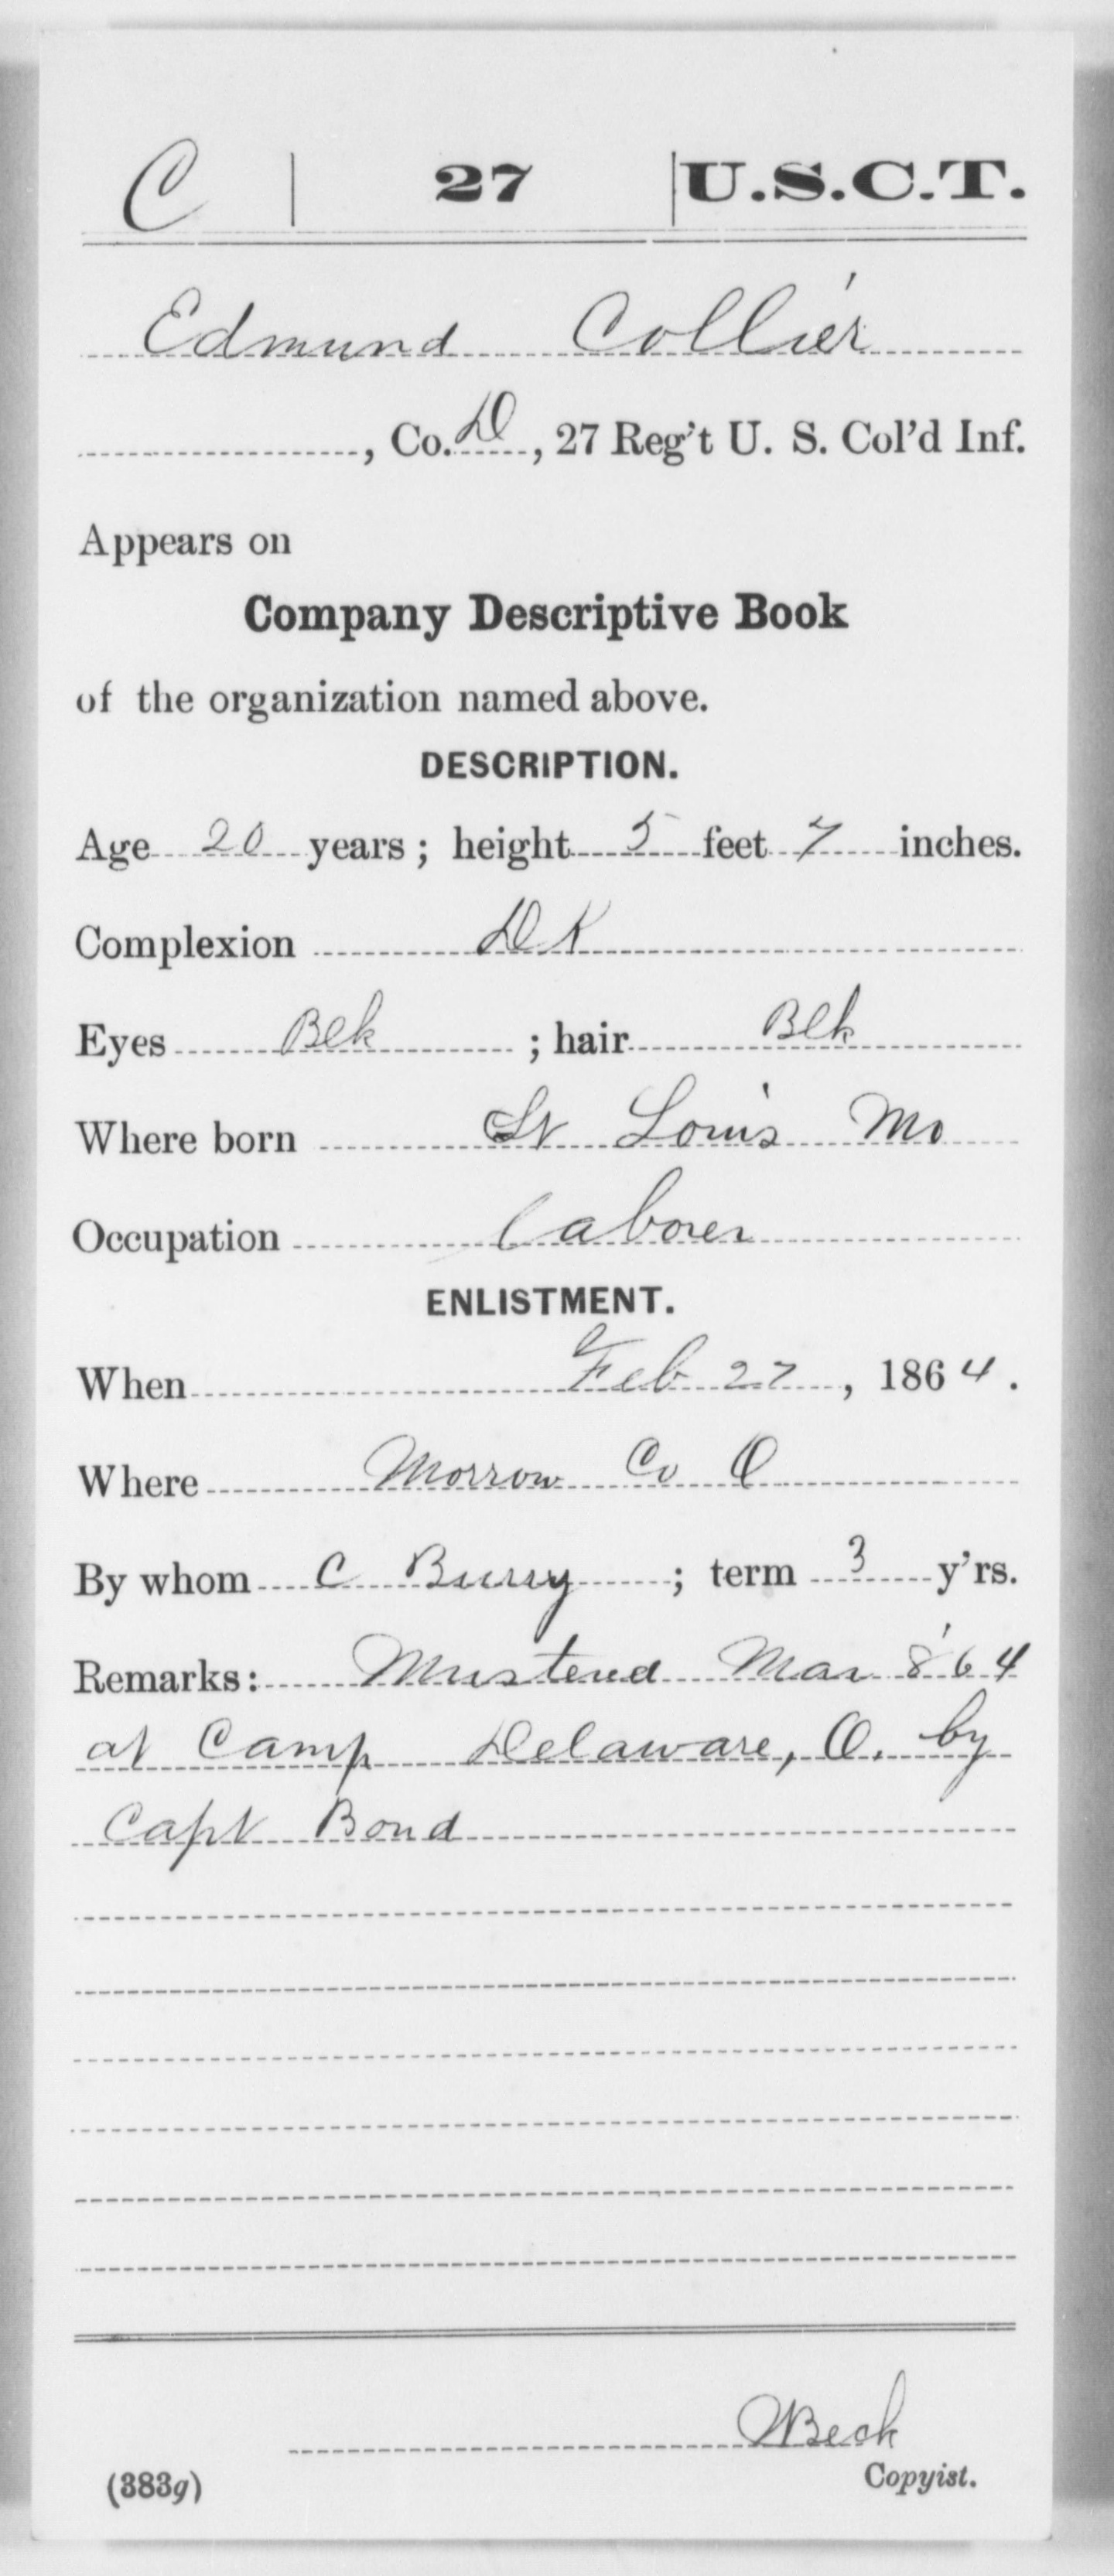 C | 27 | U.S.C.T.
Edmund Collier
, Co. D, 27 Reg't U. S. Col'd Inf.
Appears on
Company Descriptive Book
of the organization named above.
DESCRIPTION.
Age 20 years; height 5 feet 7 inches.
Complexion DK
Eyes Blk ; hair Blk
Where born St Louis Mo
Occupation Laborer
ENLISTMENT.
When Feb 27, 1864.
Where Morrow Co O
By whom C ; term 3 y'rs.
Remarks: Mustered Mar 8 '64
at Camp Delaware, O. by
Capt Bond
Beck
(383g) Copyist.